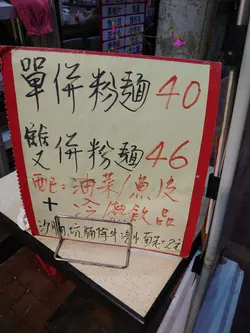 單併粉麵40
雙併粉麵46
配:油菜/魚皮
+
冷熱飲品